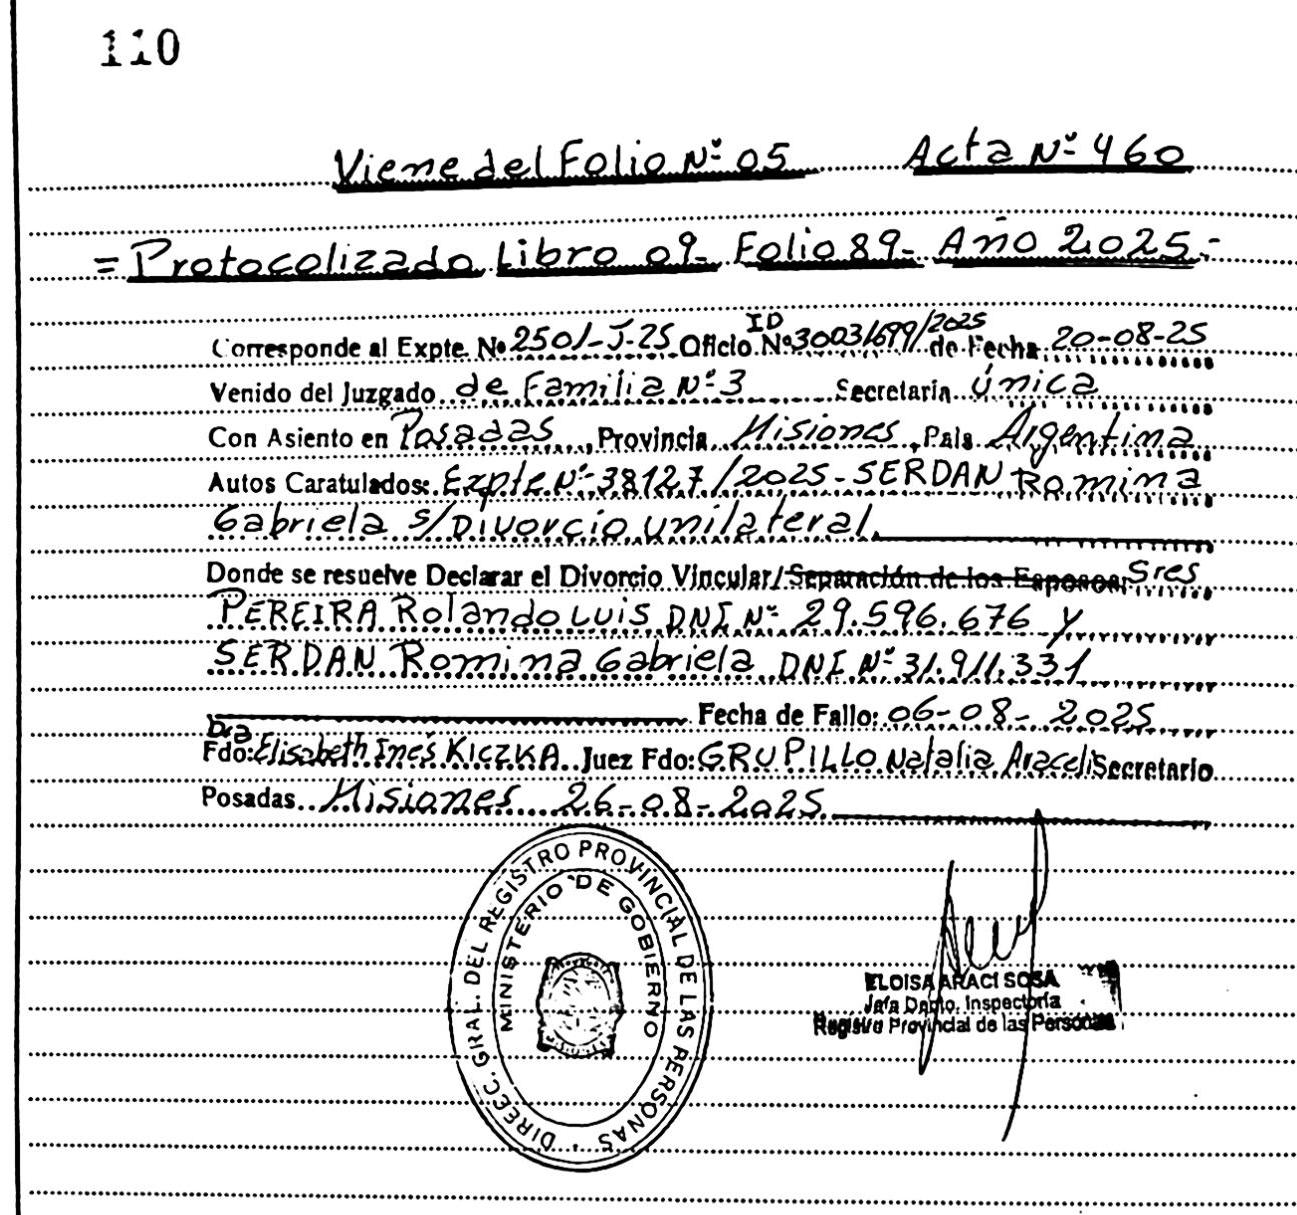 110
Viene del Folio Nº 05 Acta Nº 460
= Protocolizado Libro 09- Folio 89- Año 2025.-
Corresponde al Expte. Nº 2501-J-25 Oficio ID Nº 30031699/2025 de Fecha 20-08-25
Venido del Juzgado de Familia Nº 3 Secretaría única
Con Asiento en Posadas, Provincia Misiones, País Argentina
Autos Caratulados: Expte Nº 38127/2025- SERDAN Romina
Gabriela s/Divorcio unilateral.
Donde se resuelve Declarar el Divorcio Vincular/Separación de los Esposos: Sres
PEREIRA Rolando Luis DNI Nº 29.596.676 y
SERDAN Romina Gabriela DNI Nº 31.911.331
Fecha de Fallo: 06-08-2025
Dra
Fdo: Elisabeth Inés KICZKA Juez Fdo: GRUPILLO Natalia Araceli Secretario
Posadas Misiones 26-08-2025.
DIREEC. GRAL. DEL REGISTRO PROVINCIAL DE LAS PERSONAS
MINISTERIO DE GOBIERNO
ELOISA ARACI SOSA
Jefa Depto. Inspectoría
Registro Provincial de las Personas